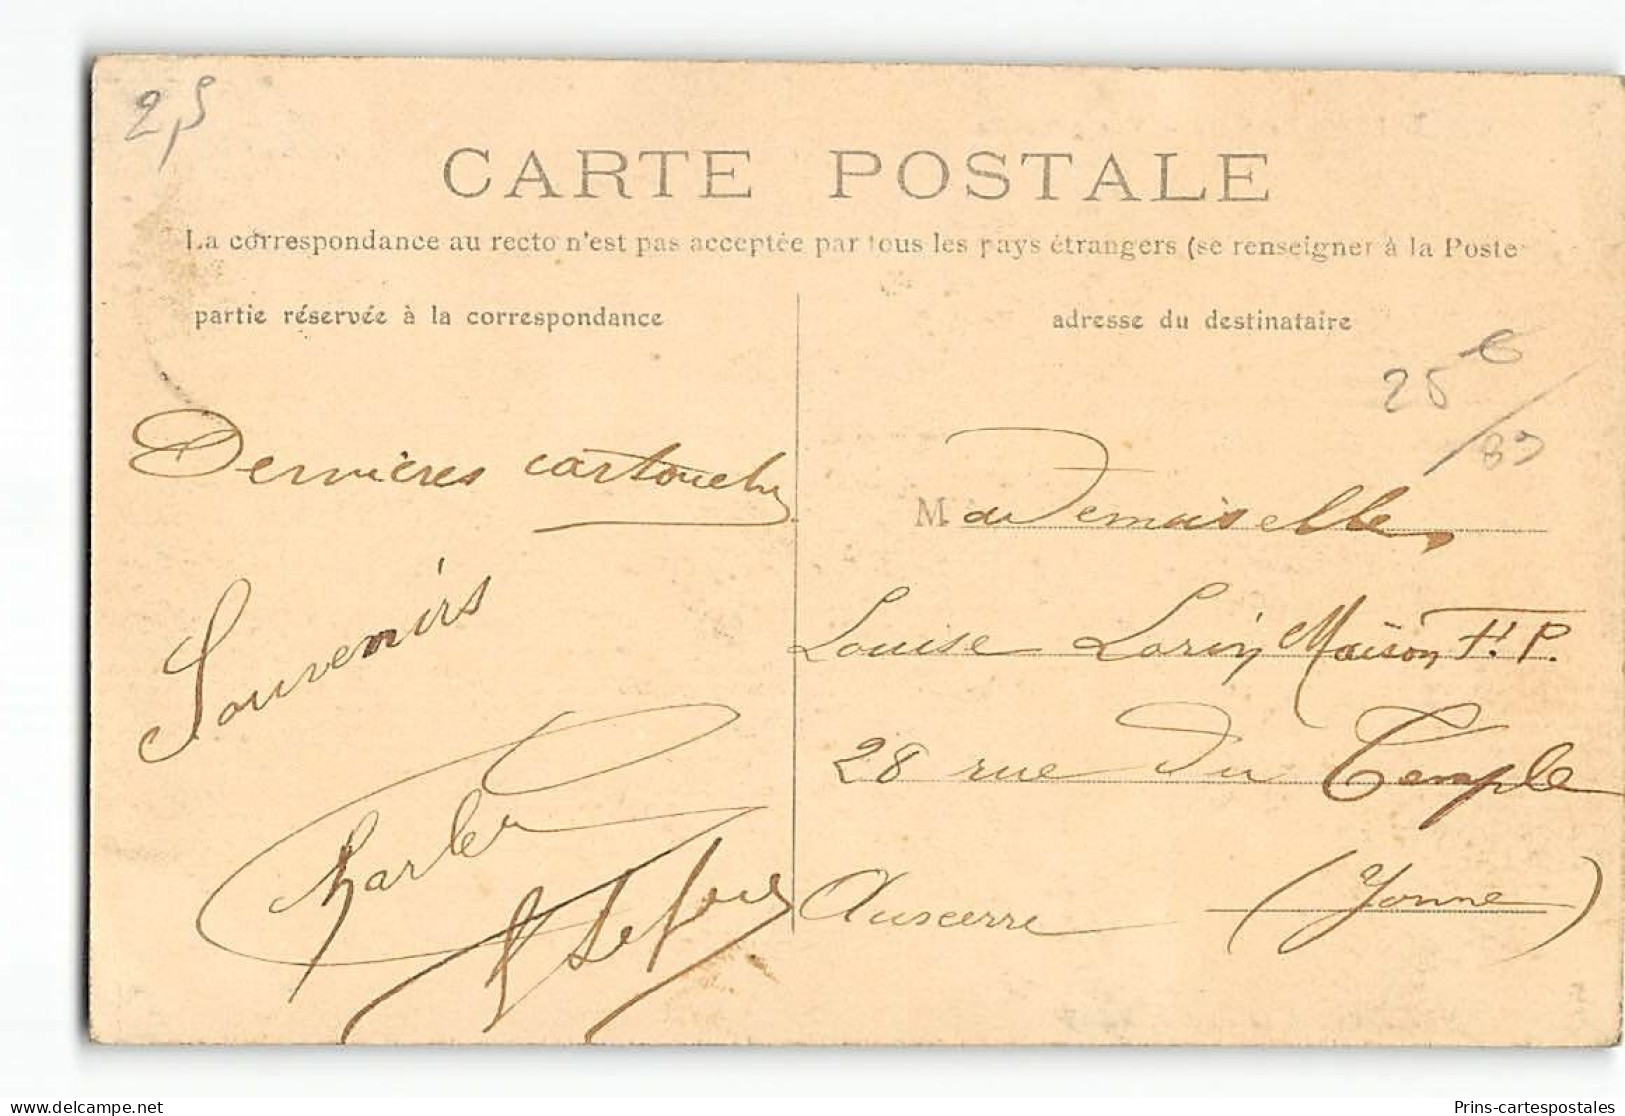 2,5
CARTE POSTALE
La correspondance au recto n'est pas acceptée par tous les pays étrangers (se renseigner à la Poste
partie réservée à la correspondance
adresse du destinataire
25 €
/89
Dernières cartouches
Souvenirs
Charles
MaDemoiselle,
Louise Lorin Maison F. P.
28 rue Du Temple
Auxerre (Yonne)
delcampe.net
Prins-cartespostales